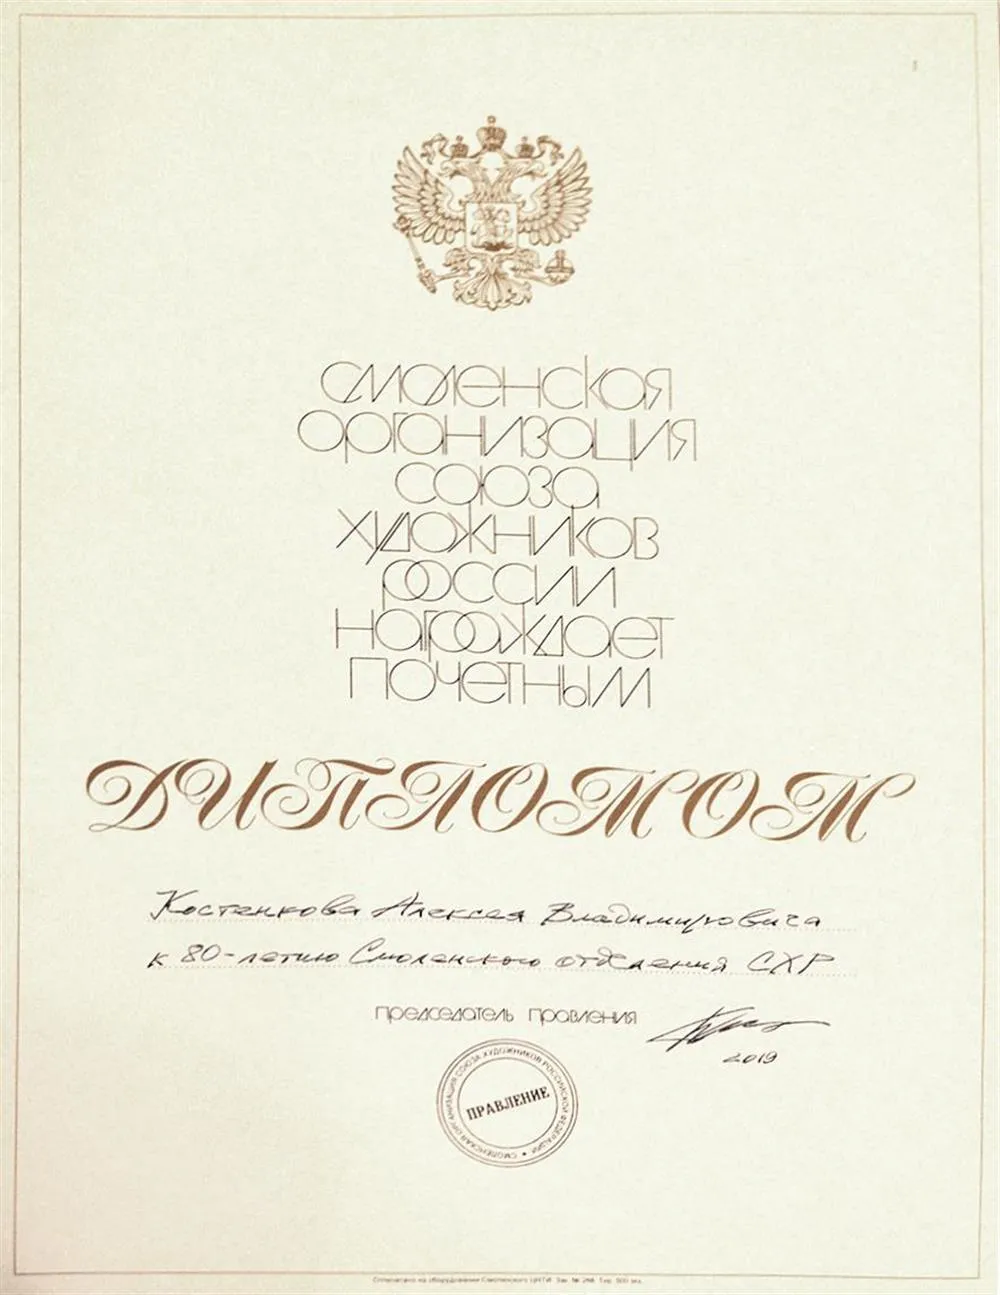 смоленская
организация
союза
художников
россии
награждает
почетным
ДИПЛОМОМ
Костенкова Алексея Владимировича
к 80-летию Смоленского отделения СХР
председатель правления
2019
СМОЛЕНСКАЯ ОРГАНИЗАЦИЯ СОЮЗА ХУДОЖНИКОВ РОССИЙСКОЙ ФЕДЕРАЦИИ
ПРАВЛЕНИЕ
Отпечатано на оборудовании Смоленского ЦНТИ Зак. № 268 Тир. 500 экз.